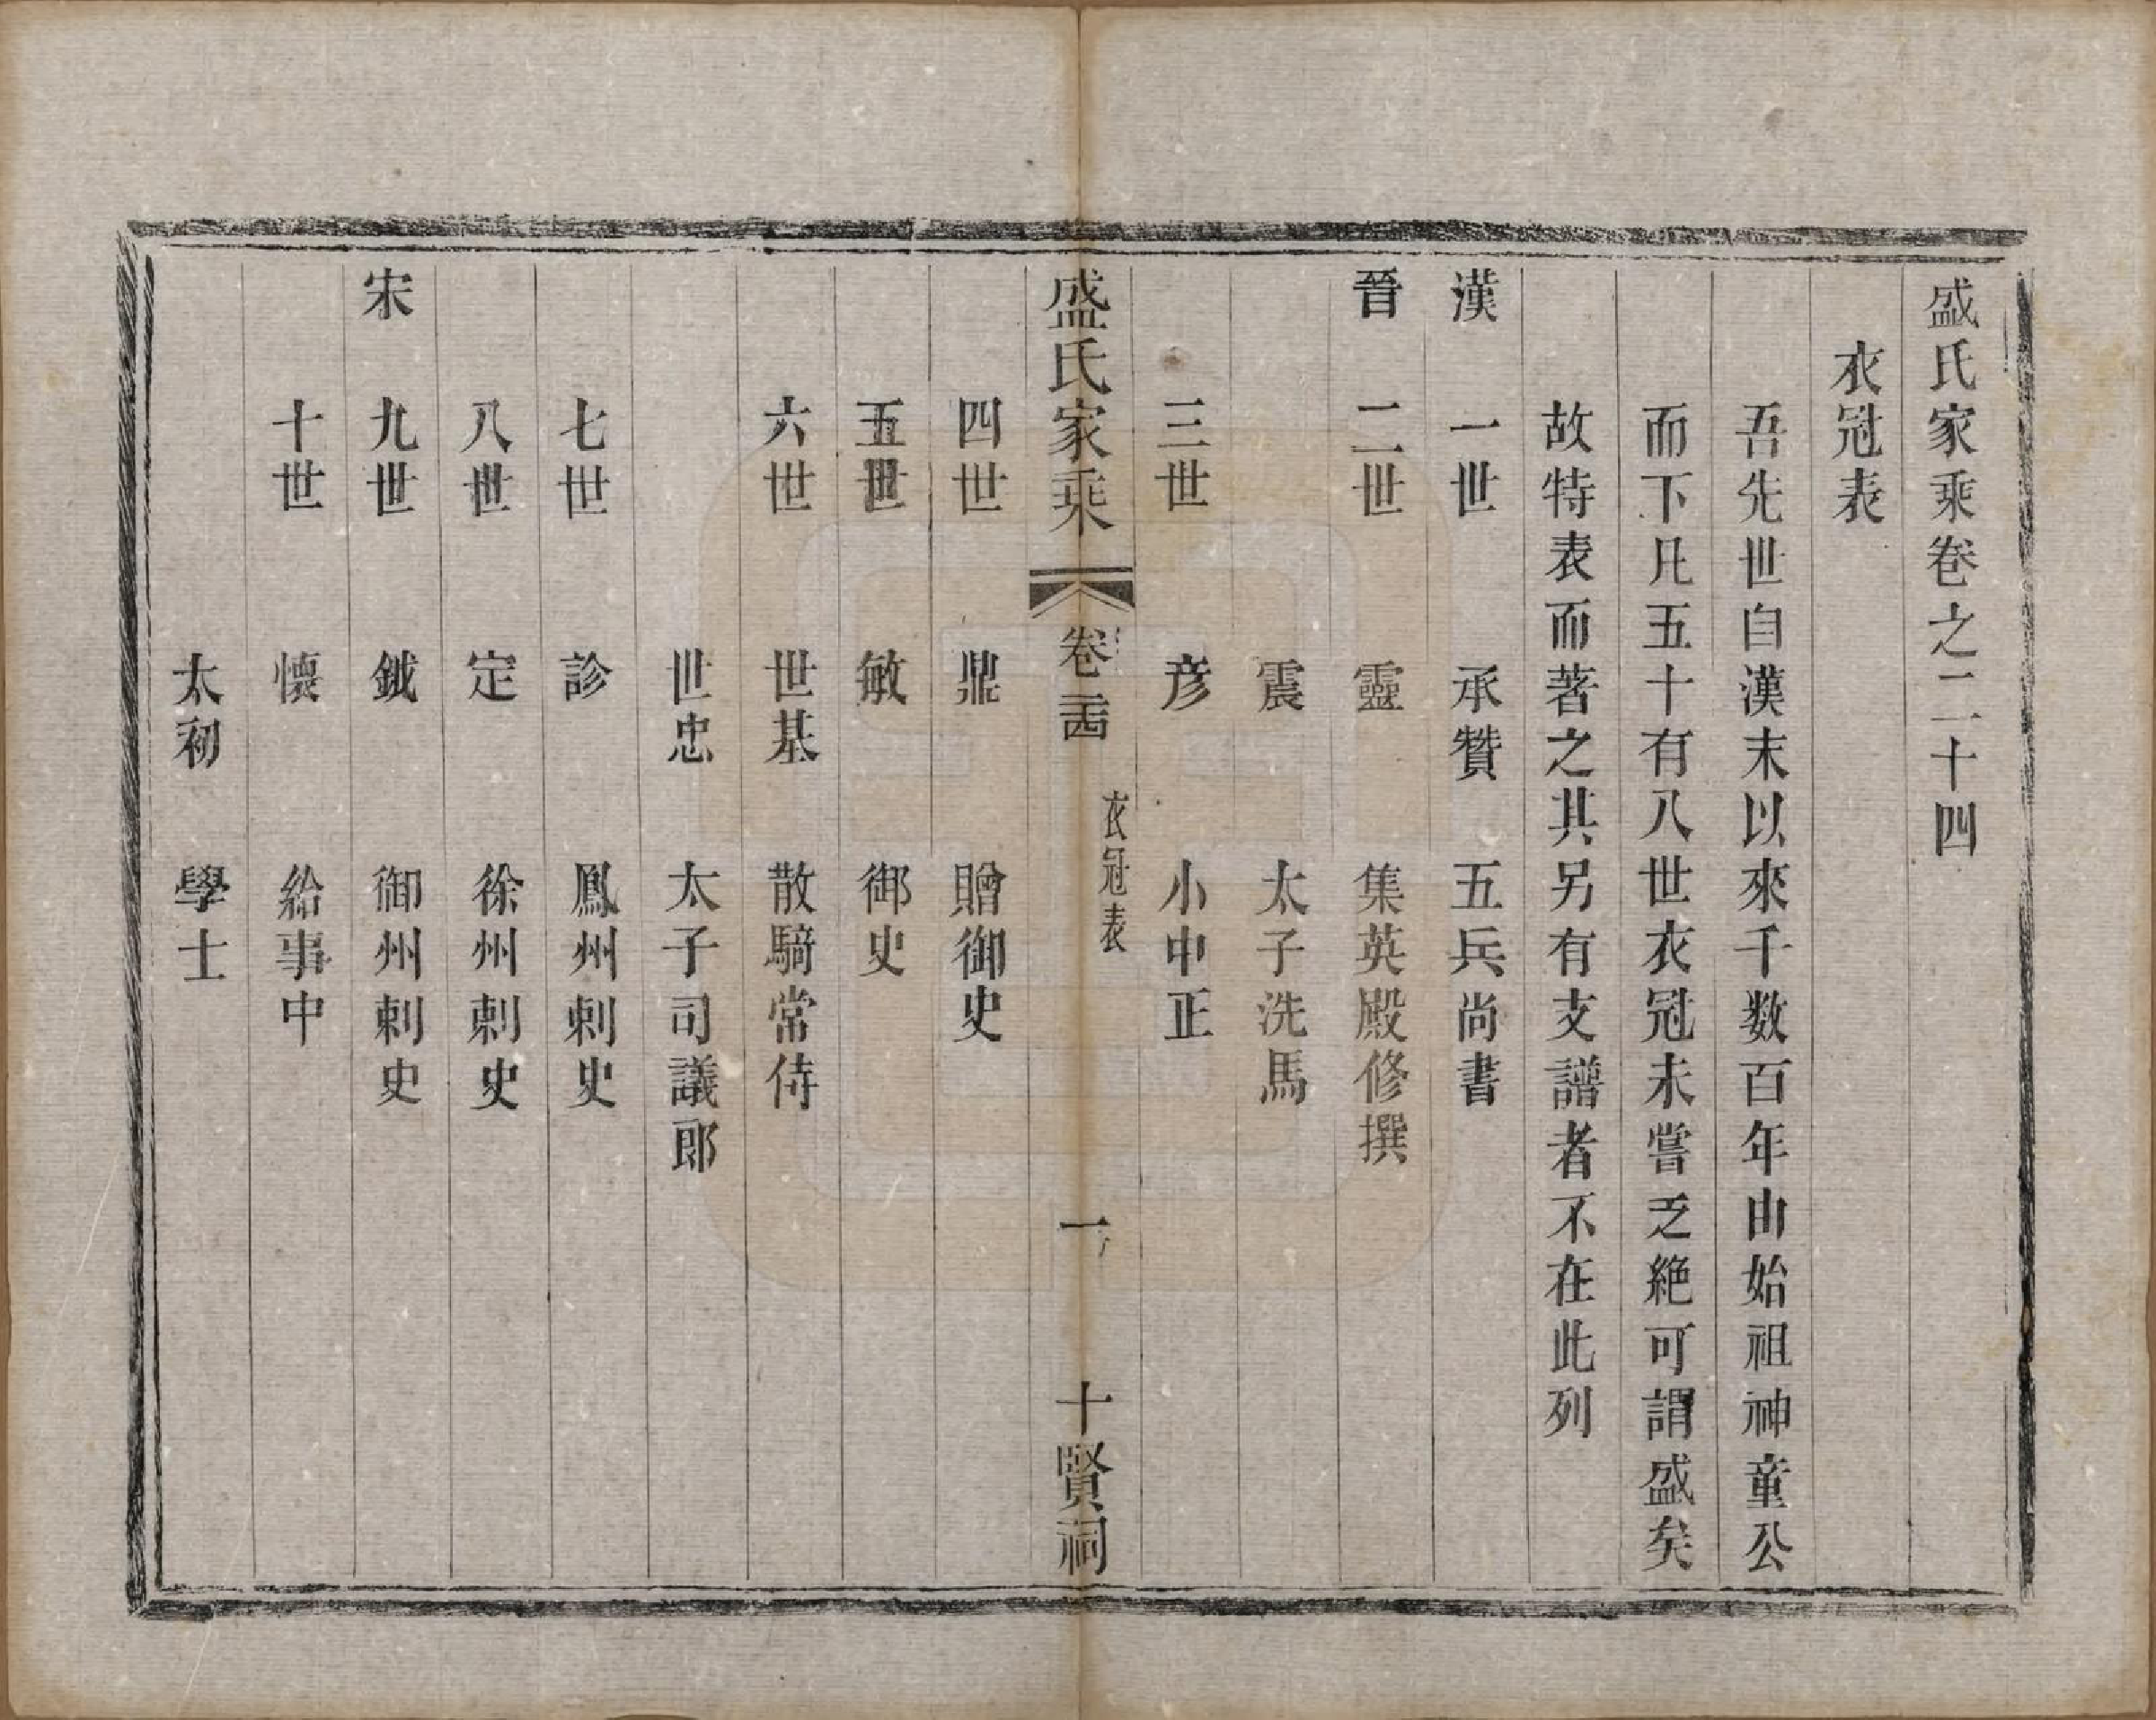 盛氏家乘卷之二十四
衣冠表
吾先世自漢末以來千数百年由始祖神童公
而下凡五十有八世衣冠未嘗乏絶可謂盛矣
故特表而著之其另有支譜者不在此列
漢 一世 承贊 五兵尚書
晉 二世 靈 集英殿修撰
震 太子洗馬
三世 彦 小中正
盛氏家乘 卷二十四 衣冠表 一 十賢祠
四世 鼎 贈御史
五世 敏 御史
六世 世基 散騎常侍
世忠 太子司議郎
七世 診 鳳州刺史
八世 定 徐州刺史
宋 九世 鉞 御州刺史
十世 懷 給事中
太初 學士